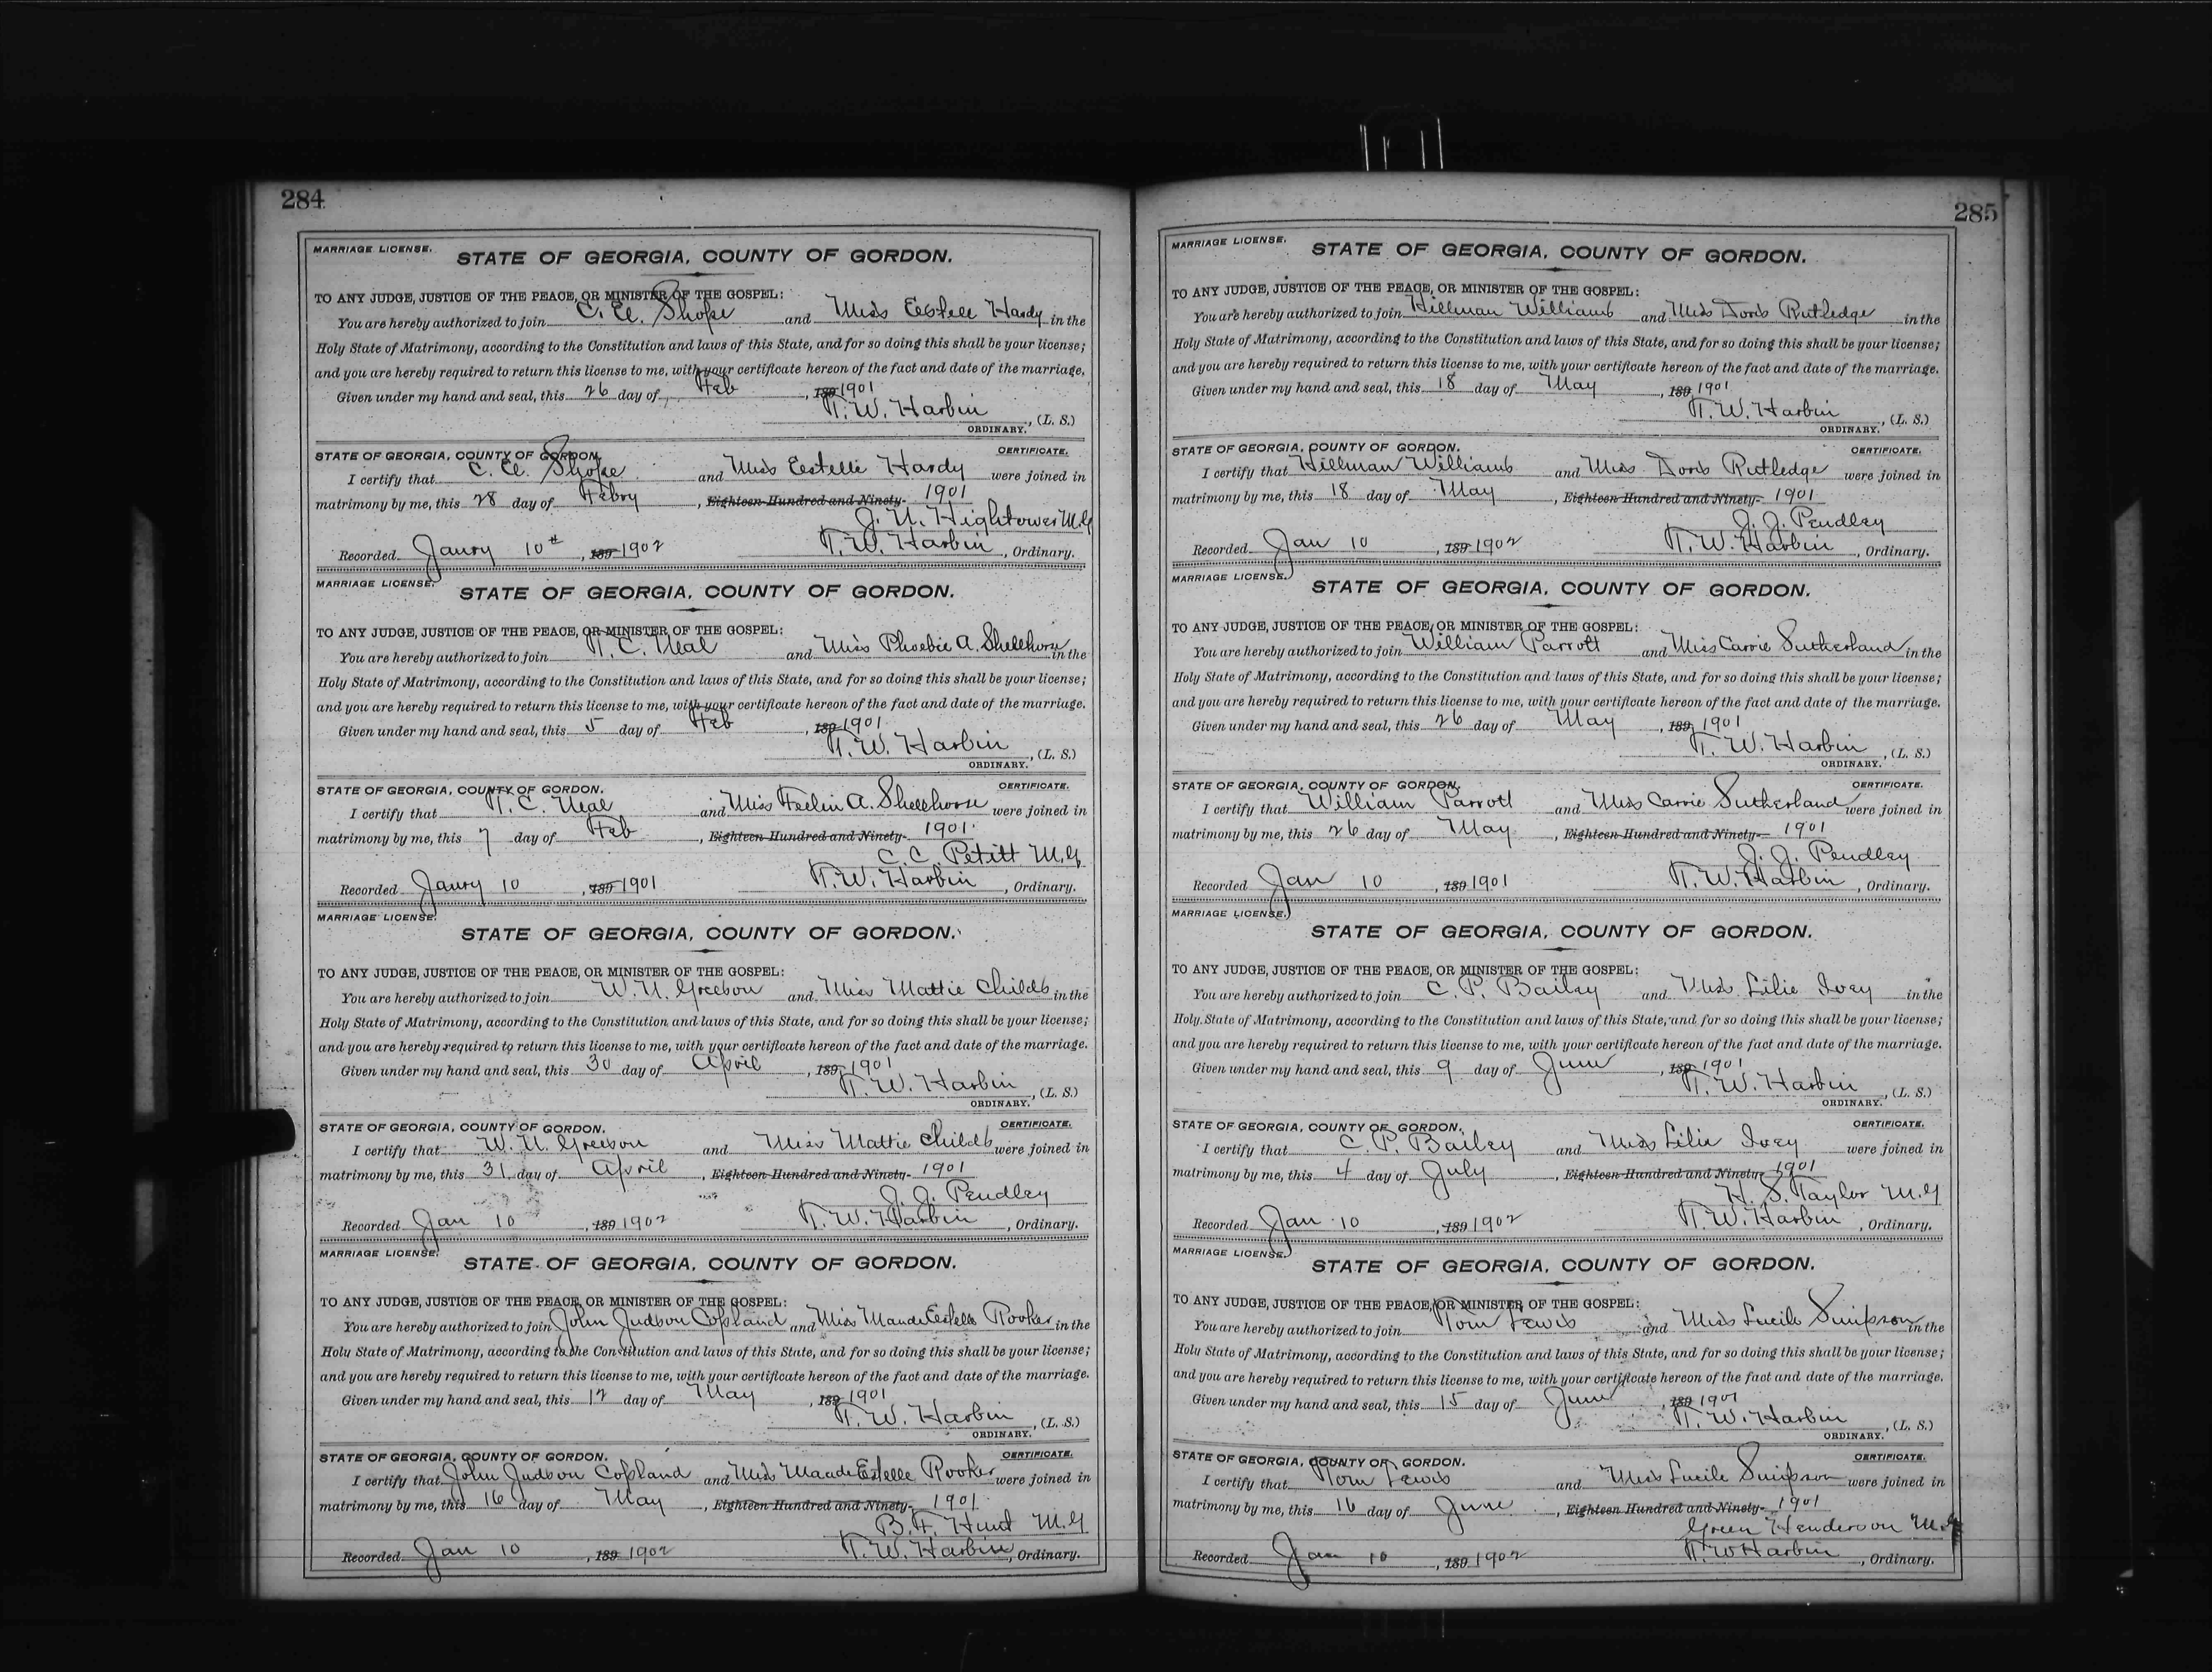 284
MARRIAGE LICENSE.
STATE OF GEORGIA, COUNTY OF GORDON.
TO ANY JUDGE, JUSTICE OF THE PEACE, OR MINISTER OF THE GOSPEL:
You are hereby authorized to join C. E. Shope and Miss Estell Hardy in the
Holy State of Matrimony, according to the Constitution and laws of this State, and for so doing this shall be your license;
and you are hereby required to return this license to me, with your certificate hereon of the fact and date of the marriage.
Given under my hand and seal, this 26 day of Feb, 189 1901
T. W. Harbin, (L. S.)
ORDINARY.
STATE OF GEORGIA, COUNTY OF GORDON. CERTIFICATE.
I certify that C. E. Shope and Miss Estelle Hardy were joined in
matrimony by me, this 28 day of Febry, Eighteen Hundred and Ninety- 1901
J. N. Hightower M.G
Recorded Janry 10th, 189 1902 T. W. Harbin, Ordinary.
MARRIAGE LICENSE.
STATE OF GEORGIA, COUNTY OF GORDON.
TO ANY JUDGE, JUSTICE OF THE PEACE, OR MINISTER OF THE GOSPEL:
You are hereby authorized to join T. C. Neal and Miss Phoebie A. Shellhorse in the
Holy State of Matrimony, according to the Constitution and laws of this State, and for so doing this shall be your license;
and you are hereby required to return this license to me, with your certificate hereon of the fact and date of the marriage.
Given under my hand and seal, this 5 day of Feb, 189 1901
T. W. Harbin, (L. S.)
ORDINARY.
STATE OF GEORGIA, COUNTY OF GORDON. CERTIFICATE.
I certify that T. C. Neal and Miss A. Shellhorse were joined in
matrimony by me, this 7 day of Feb, Eighteen Hundred and Ninety- 1901
C. C. Petitt M.G
Recorded Janry 10, 189 1901 T. W. Harbin, Ordinary.
MARRIAGE LICENSE.
STATE OF GEORGIA, COUNTY OF GORDON.
TO ANY JUDGE, JUSTICE OF THE PEACE, OR MINISTER OF THE GOSPEL:
You are hereby authorized to join W. N. Greeson and Miss Mattie Childs in the
Holy State of Matrimony, according to the Constitution and laws of this State, and for so doing this shall be your license;
and you are hereby required to return this license to me, with your certificate hereon of the fact and date of the marriage.
Given under my hand and seal, this 30 day of April, 189 1901
T. W. Harbin, (L. S.)
ORDINARY.
STATE OF GEORGIA, COUNTY OF GORDON. CERTIFICATE.
I certify that W. N. Greeson and Miss Mattie Childs were joined in
matrimony by me, this 31 day of April, Eighteen Hundred and Ninety- 1901
J. J. Pendley
Recorded Jan 10, 189 1902 T. W. Harbin, Ordinary.
MARRIAGE LICENSE.
STATE OF GEORGIA, COUNTY OF GORDON.
TO ANY JUDGE, JUSTICE OF THE PEACE, OR MINISTER OF THE GOSPEL:
You are hereby authorized to join John Judson Copland and Miss Maude Estelle Rooker in the
Holy State of Matrimony, according to the Constitution and laws of this State, and for so doing this shall be your license;
and you are hereby required to return this license to me, with your certificate hereon of the fact and date of the marriage.
Given under my hand and seal, this 12 day of May, 189 1901
T. W. Harbin, (L. S.)
ORDINARY.
STATE OF GEORGIA, COUNTY OF GORDON. CERTIFICATE.
I certify that John Judson Copland and Miss Maude Estelle Rooker were joined in
matrimony by me, this 16 day of May, Eighteen Hundred and Ninety- 1901
B. F. Hunt M.G
Recorded Jan 10, 189 1902 T. W. Harbin, Ordinary.
285
MARRIAGE LICENSE.
STATE OF GEORGIA, COUNTY OF GORDON.
TO ANY JUDGE, JUSTICE OF THE PEACE, OR MINISTER OF THE GOSPEL:
You are hereby authorized to join Hillman Williams and Miss Doris Rutledge in the
Holy State of Matrimony, according to the Constitution and laws of this State, and for so doing this shall be your license;
and you are hereby required to return this license to me, with your certificate hereon of the fact and date of the marriage.
Given under my hand and seal, this 18 day of May, 189 1901
T. W. Harbin, (L. S.)
ORDINARY.
STATE OF GEORGIA, COUNTY OF GORDON. CERTIFICATE.
I certify that Hillman Williams and Miss Doris Rutledge were joined in
matrimony by me, this 18 day of May, Eighteen Hundred and Ninety- 1901
J. J. Pendley
Recorded Jan 10, 189 1902 T. W. Harbin, Ordinary.
MARRIAGE LICENSE.
STATE OF GEORGIA, COUNTY OF GORDON.
TO ANY JUDGE, JUSTICE OF THE PEACE, OR MINISTER OF THE GOSPEL:
You are hereby authorized to join William Parrott and Miss Carrie Sutherland in the
Holy State of Matrimony, according to the Constitution and laws of this State, and for so doing this shall be your license;
and you are hereby required to return this license to me, with your certificate hereon of the fact and date of the marriage.
Given under my hand and seal, this 26 day of May, 189 1901
T. W. Harbin, (L. S.)
ORDINARY.
STATE OF GEORGIA, COUNTY OF GORDON. CERTIFICATE.
I certify that William Parrott and Miss Carrie Sutherland were joined in
matrimony by me, this 26 day of May, Eighteen Hundred and Ninety- 1901
J. J. Pendley
Recorded Jan 10, 189 1901 T. W. Harbin, Ordinary.
MARRIAGE LICENSE.
STATE OF GEORGIA, COUNTY OF GORDON.
TO ANY JUDGE, JUSTICE OF THE PEACE, OR MINISTER OF THE GOSPEL:
You are hereby authorized to join C. P. Bailey and Miss Lilie Ivey in the
Holy State of Matrimony, according to the Constitution and laws of this State, and for so doing this shall be your license;
and you are hereby required to return this license to me, with your certificate hereon of the fact and date of the marriage.
Given under my hand and seal, this 9 day of June, 189 1901
T. W. Harbin, (L. S.)
ORDINARY.
STATE OF GEORGIA, COUNTY OF GORDON. CERTIFICATE.
I certify that C. P. Bailey and Miss Lilie Ivey were joined in
matrimony by me, this 4 day of July, Eighteen Hundred and Ninety- 1901
H. S. Taylor M.G
Recorded Jan 10, 189 1902 T. W. Harbin, Ordinary.
MARRIAGE LICENSE.
STATE OF GEORGIA, COUNTY OF GORDON.
TO ANY JUDGE, JUSTICE OF THE PEACE, OR MINISTER OF THE GOSPEL:
You are hereby authorized to join Tom Lewis and Miss Lucile Simpson in the
Holy State of Matrimony, according to the Constitution and laws of this State, and for so doing this shall be your license;
and you are hereby required to return this license to me, with your certificate hereon of the fact and date of the marriage.
Given under my hand and seal, this 15 day of June, 189 1901
T. W. Harbin, (L. S.)
ORDINARY.
STATE OF GEORGIA, COUNTY OF GORDON. CERTIFICATE.
I certify that Tom Lewis and Miss Lucile Simpson were joined in
matrimony by me, this 16 day of June, Eighteen Hundred and Ninety- 1901
Green Henderson M.G
Recorded Jan 10, 189 1902 T. W Harbin, Ordinary.